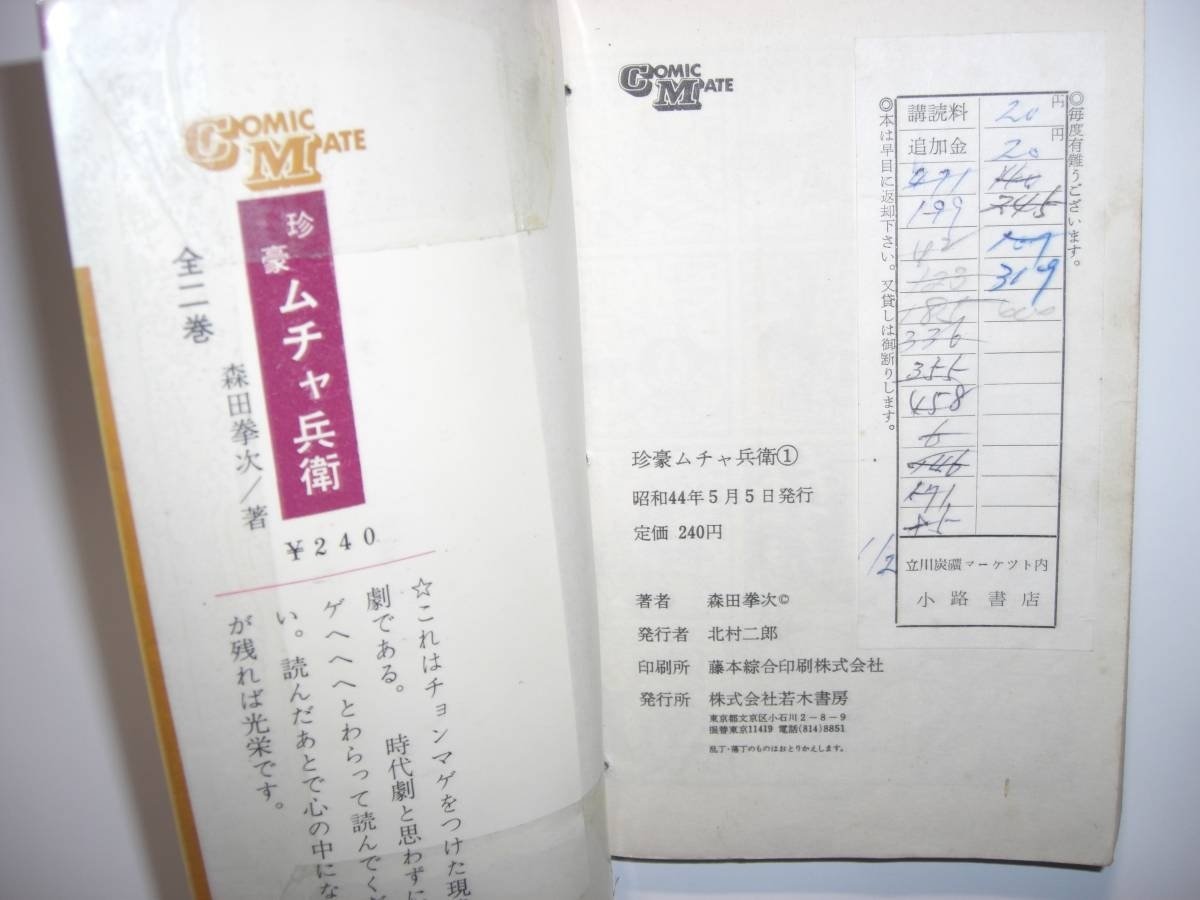 COMIC MATE
珍豪ムチャ兵衛
全二巻
森田拳次/著
¥240
☆これはチョンマゲをつけた現
劇である。 時代劇と思わずに
ゲヘヘヘとわらって読んでく
い。読んだあとで心の中にな
が残れば光栄です。
COMIC MATE
珍豪ムチャ兵衛①
昭和44年5月5日発行
定価 240円
著者 森田拳次©
発行者 北村二郎
印刷所 藤本綜合印刷株式会社
発行所 株式会社若木書房
東京都文京区小石川2-8-9
振替東京11419 電話(814)8851
乱丁・落丁のものはおとりかえします。
◎毎度有難うございます。
講読料 20円
追加金 20円
471
199
345
42
107
123
319
336
355
458
6
171
1/2
立川炭礦マーケット内
小路書店
◎本は早目に返却下さい。又貸しは御断りします。